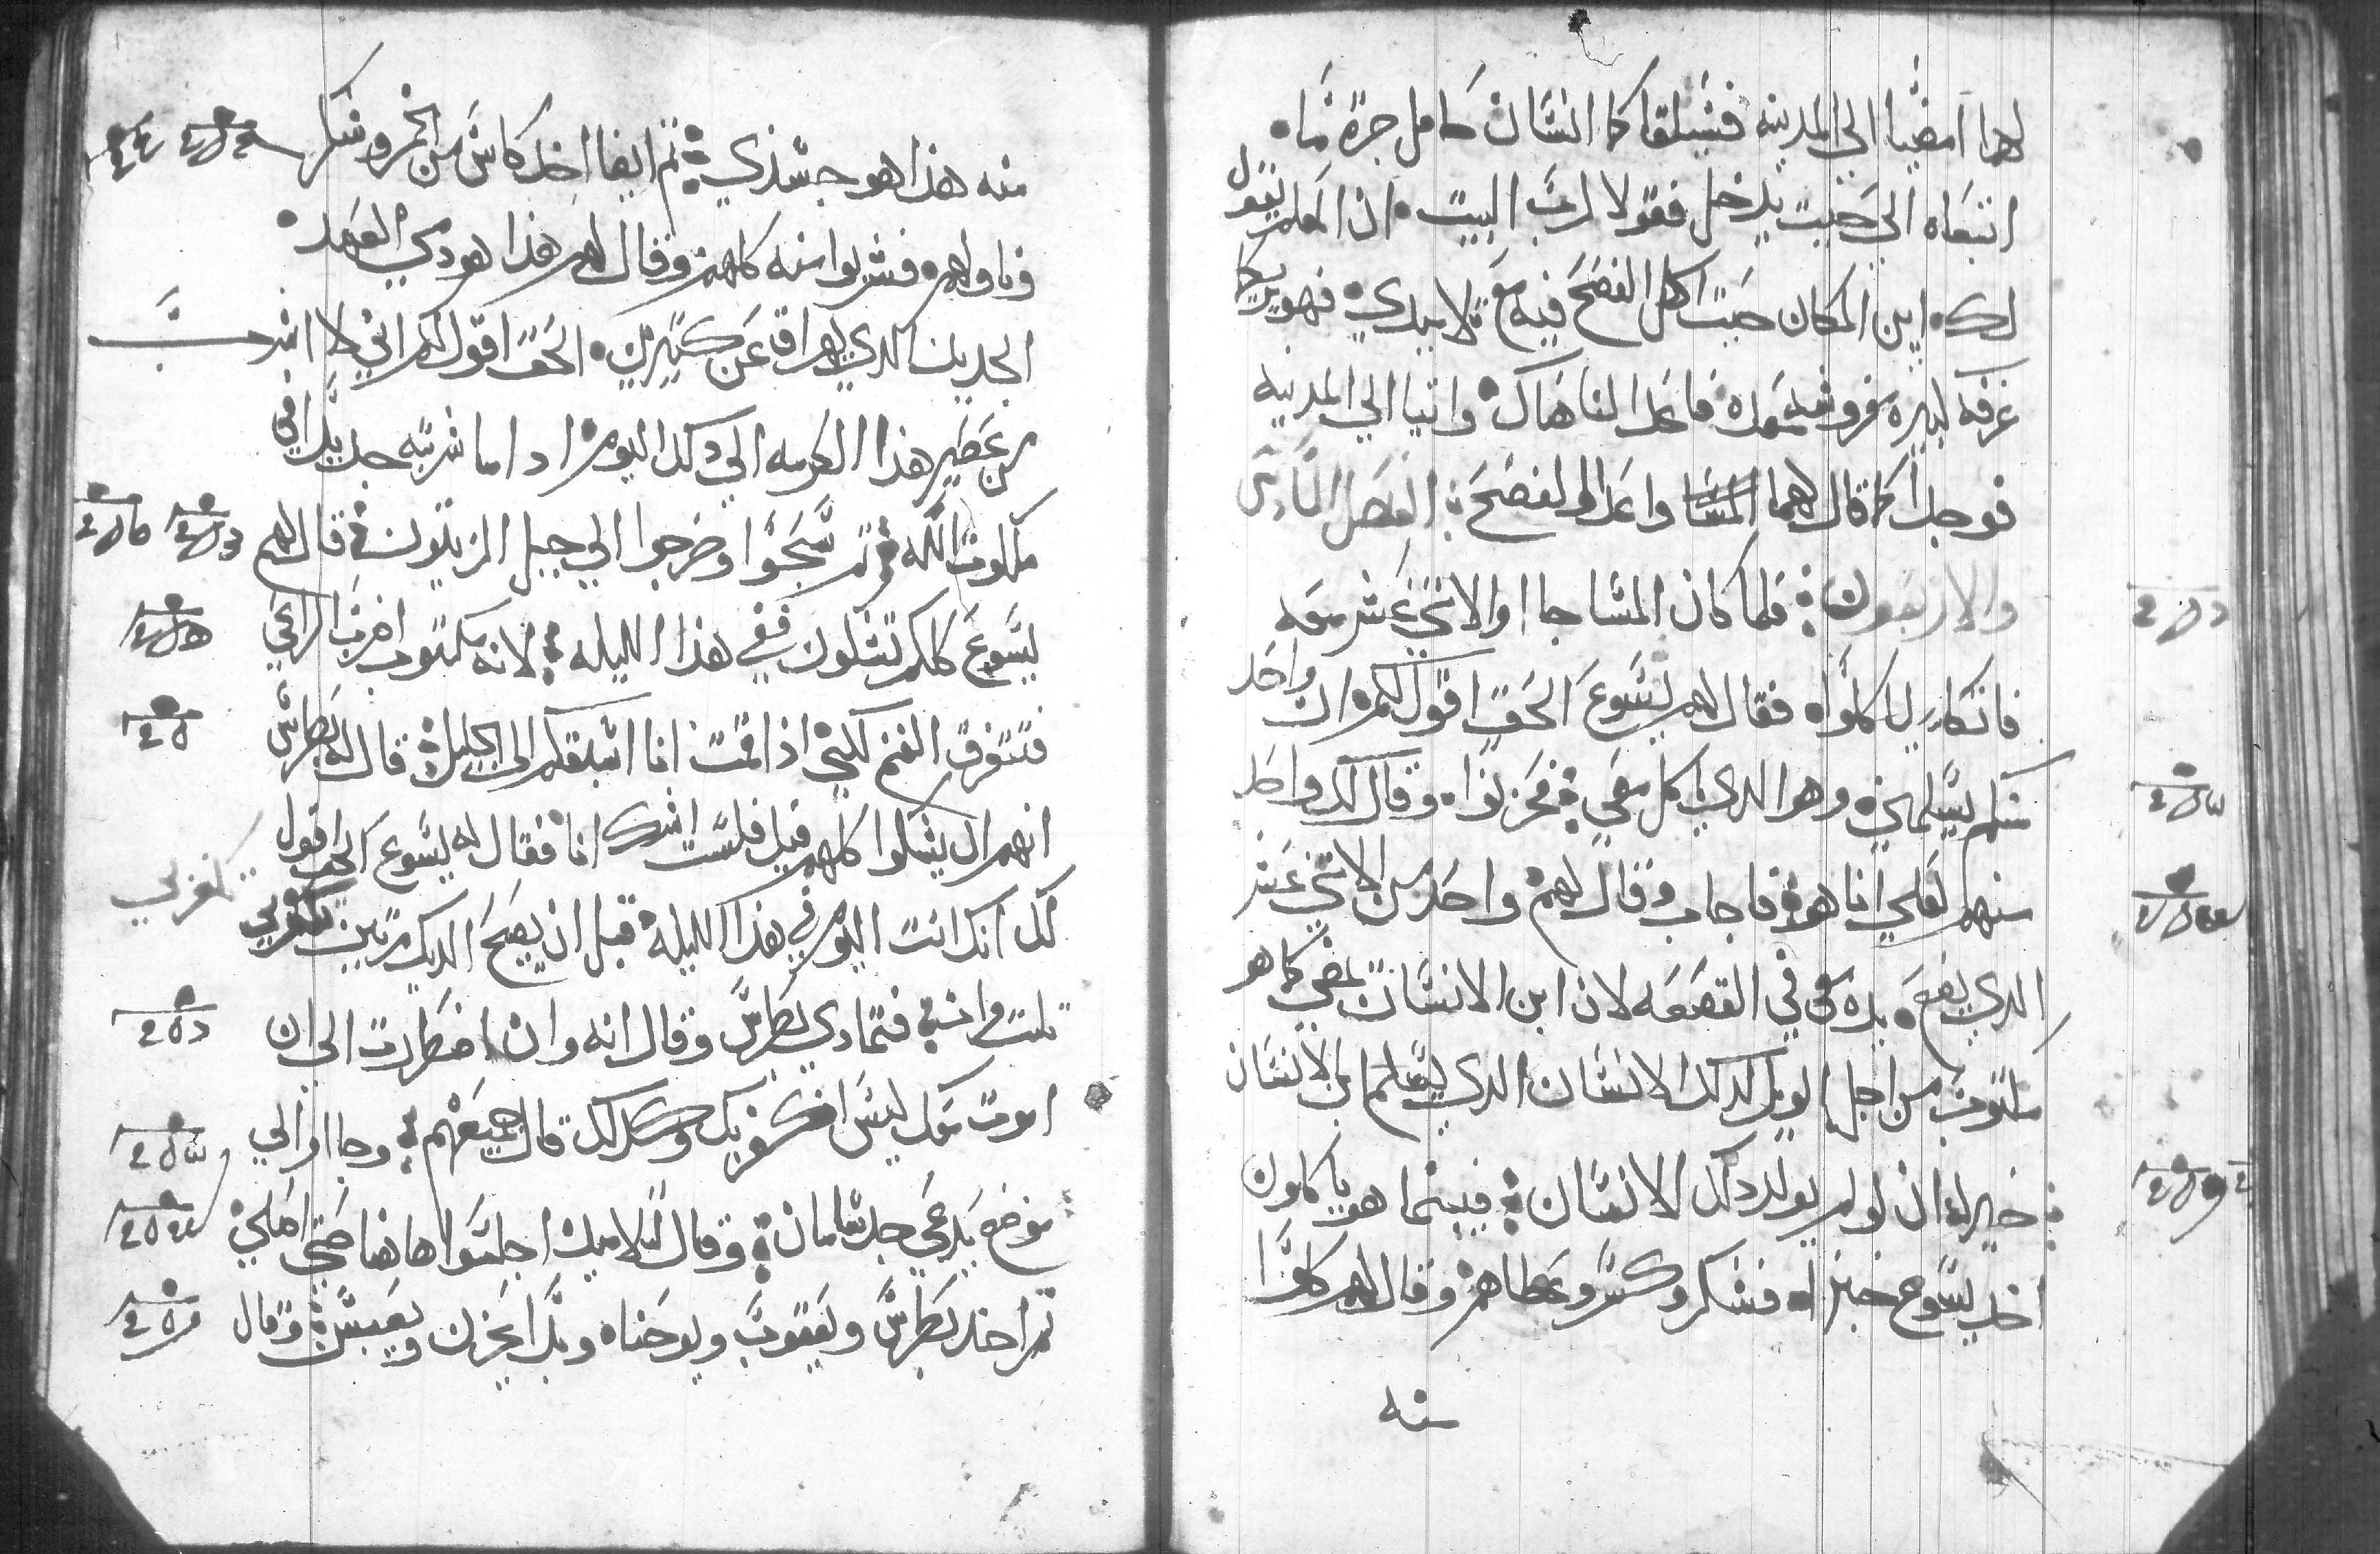 لهما امضيا الي المدينه فسيلقاكما انسان حامل جرة ماء
اتبعاه الي حيت يدخل فقولا لرب البيت ان المعلم يقول
لك اين المكان حيت اكل الفصح فيه مع تلاميدي فهو يريكما
غرفه كبيره مفروشه معده فاعدا لنا هناك واتيا الي المدينه
فوجدا كما قال لهما واعدا الفصح الفصل التاني
والاربعون فلما كان المسا جا والاتني عشر معه
فاتكا ليا كلوا فقال لهم يسوع الحق اقول لكم ان واحد
منكم يسلمني وهو الدي ياكل معي فحزنوا وقال كل واحد
منهم لعلي انا هو فاجاب وقال لهم واحد من الاتني عشر
الدي يضع يده معي في القصعه لان ابن الانسان يمضي كما هو
مكتوب من اجله الويل لدلك الانسان الدي يسلم ابن الانسان
خير له ان لو لم يولد دلك الانسان فبينما هو ياكلون
اخد يسوع خبزا فشكر وكسر وعطاهم وقال لهم كلوا
منه
منه هذا هو جسدي تم ايضا اخد كاس من الخمر وشكر
وناولهم فشربوا منه كلهم وقال لهم هذا هو دمي العهد
الجديد الدي يهراق عن كتيرين الحق اقول لكم اني لا اشرب
من عصير هذا الكرمه الي دلك اليوم ادا ما شربته جديدا في
ملكوت الله تم سبحوا وخرجوا الي جبل الزيتون قال لهم
يسوع كلكم تشكون في هذا الليله لانه مكتوب اضرب الراعي
فتتفرق الغنم لكني اذا قمت انا اسبقكم الي الجليل قال له بطرس
انهم ان يشكوا كلهم فيك فلست اشك انا فقال له يسوع الحق اقول
لك انك انت اليوم في هذا الليله قبل ان يصيح الديك مرتين تكفر بي
تكفر بي
تلت مرات فتمادي بطرس وقال انه وان اضطررت الي ان
اموت معك ليس اكفر بك وكدلك قال جميعهم وجاوا الي
موضع يدعي جدسامان وقال لتلاميده اجلسوا هاهنا حتي اصلي
تم اخد بطرس ويعقوب ويوحنا وبدا يحزن ويعبس وقال